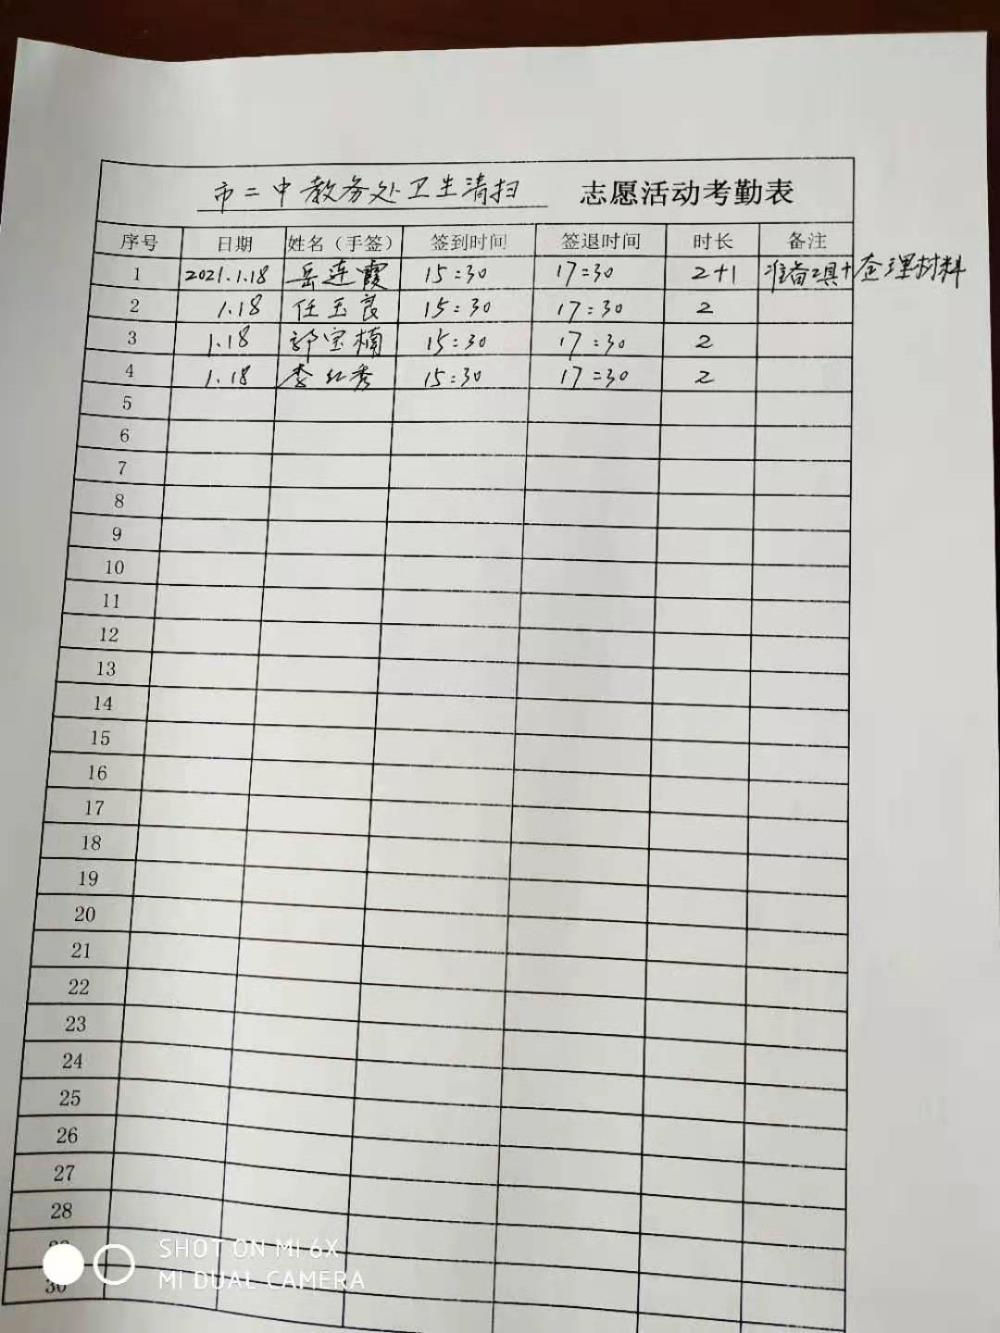 市二中教务处卫生清扫 志愿活动考勤表
序号 日期 姓名（手签） 签到时间 签退时间 时长 备注
1 2021.1.18 岳连霞 15:30 17:30 2+1 准备工具+整理材料
2 1.18 任玉良 15:30 17:30 2
3 1.18 郭宝楠 15:30 17:30 2
4 1.18 李红秀 15:30 17:30 2
5
6
7
8
9
10
11
12
13
14
15
16
17
18
19
20
21
22
23
24
25
26
27
28
29
30
SHOT ON MI 6X
MI DUAL CAMERA